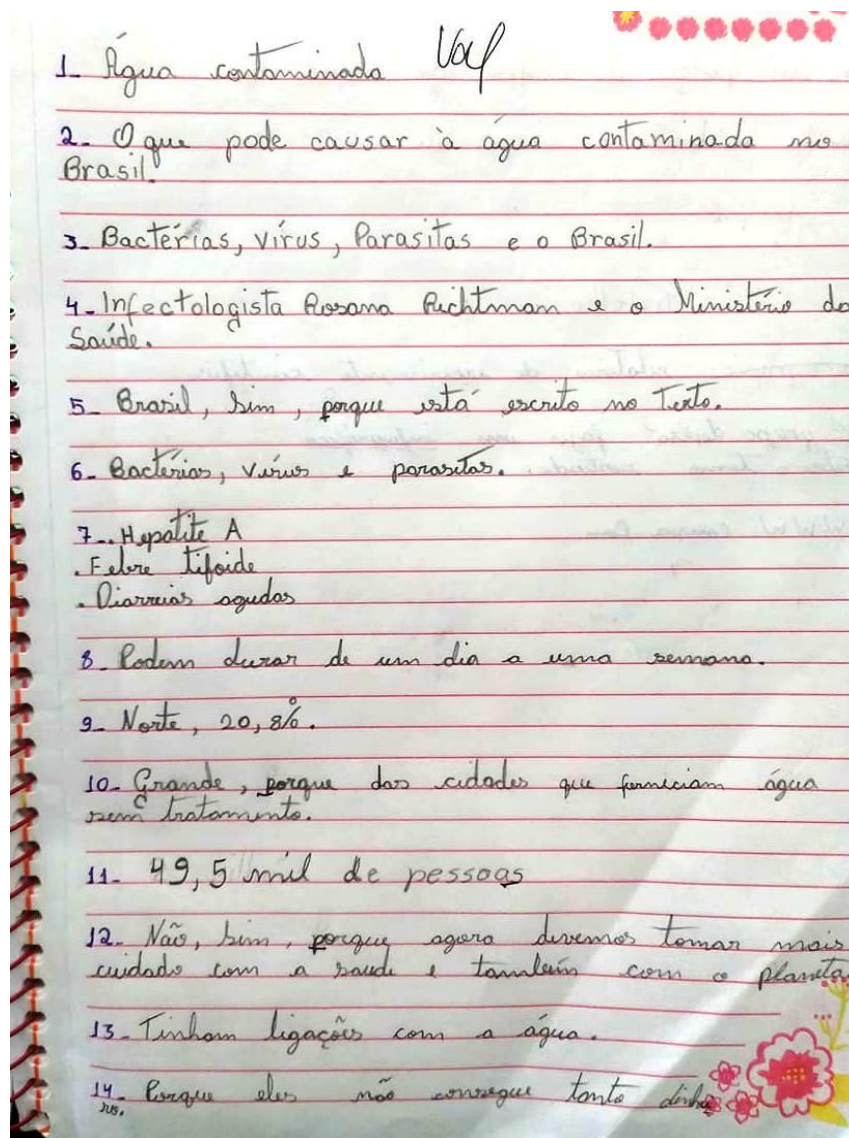 1- Água contaminada
2- O que pode causar à água contaminada no
Brasil.
3- Bactérias, vírus, Parasitas e o Brasil.
4- Infectologista Rosana Richtman e o Ministério da
Saúde.
5- Brasil, sim, porque está escrito no Texto.
6- Bactérias, vírus e parasitas.
7-. Hepatite A
. Febre tifoide
. Diarreias agudas
8- Podem durar de um dia a uma semana.
9- Norte, 20,8%.
10- Grande, porque das cidades que forneciam água
sem tratamento.
11- 49,5 mil de pessoas
12- Não, sim, porque agora devemos tomar mais
cuidado com a saude e também com o planeta
13- Tinham ligações com a água.
14- Porque eles não consegue tanto